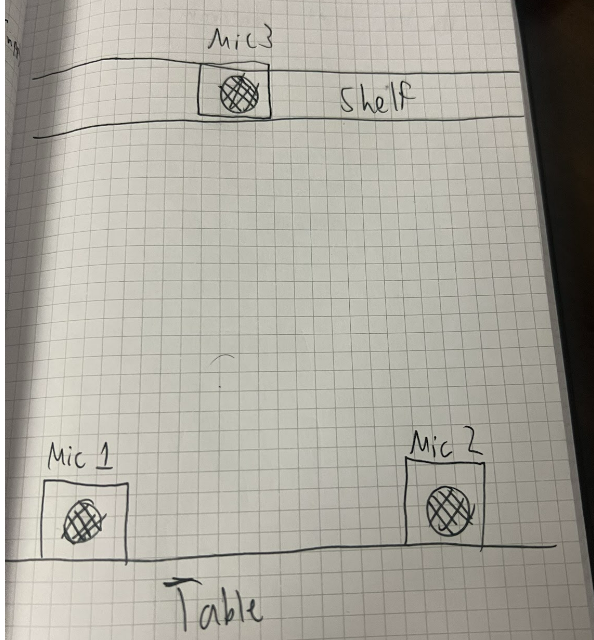 Mic3
Shelf
Mic 1
Mic 2
Table